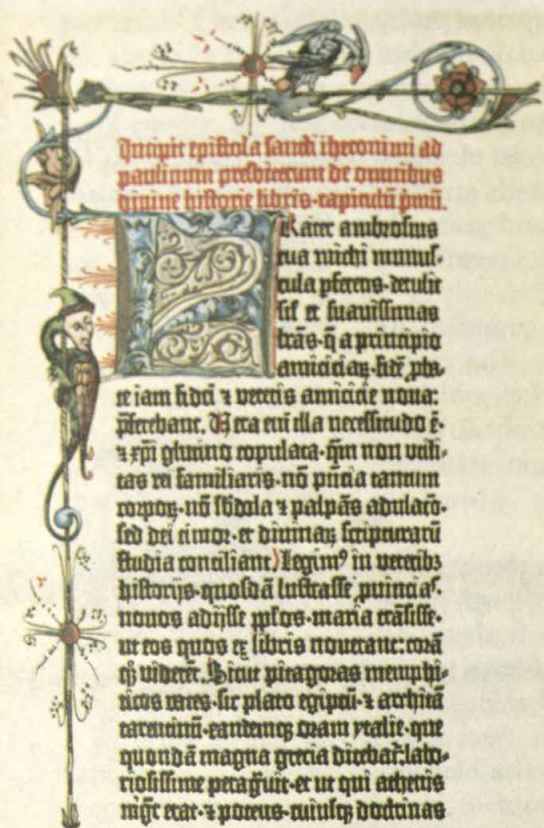 Incipit epistola sancti iheronimi ad
paulinum presbiterum de omnibus
diuine historie libris·capitulũ pmũ.
FRater ambrosius
tua michi munus-
cula ꝑferens·detulit
sil' et suauissimas
lr̃as·q̃ a principio
amiciciaꝝ·fidẽ ꝓba-
te iam fidei ⁊ veteris amicicie noua:
p̃ferebant. Uera em̄ illa necessitudo ẽ·
⁊ xp̄i glutino copulata·qm̃ non vtili-
tas rei familiaris·nõ pñcia tantum
corpoꝝ·nõ sb̃dola ⁊ palpãs adulacõ·
sed dei timor·et diuinaꝝ scripturarũ
studia conciliant. Legim⁹ in veterib⁹
historijs·quosdã lustrasse ꝓuincias·
nouos adijsse pp̃los·maria trãsisse·
ut eos quos ex libris nouerant: corã
qꝫ viderẽt. Sicut pitagoras memphi-
ticos vates·sic plato egiptũ·⁊ architã
tarentinũ·eandemqꝫ oram ytalie·que
quondã magna grecia dicebat̃: labo-
riosissime peragr̃uit·et ut qui athenis
mgr̃ erat·⁊ potens·cuiusqꝫ doctrinas